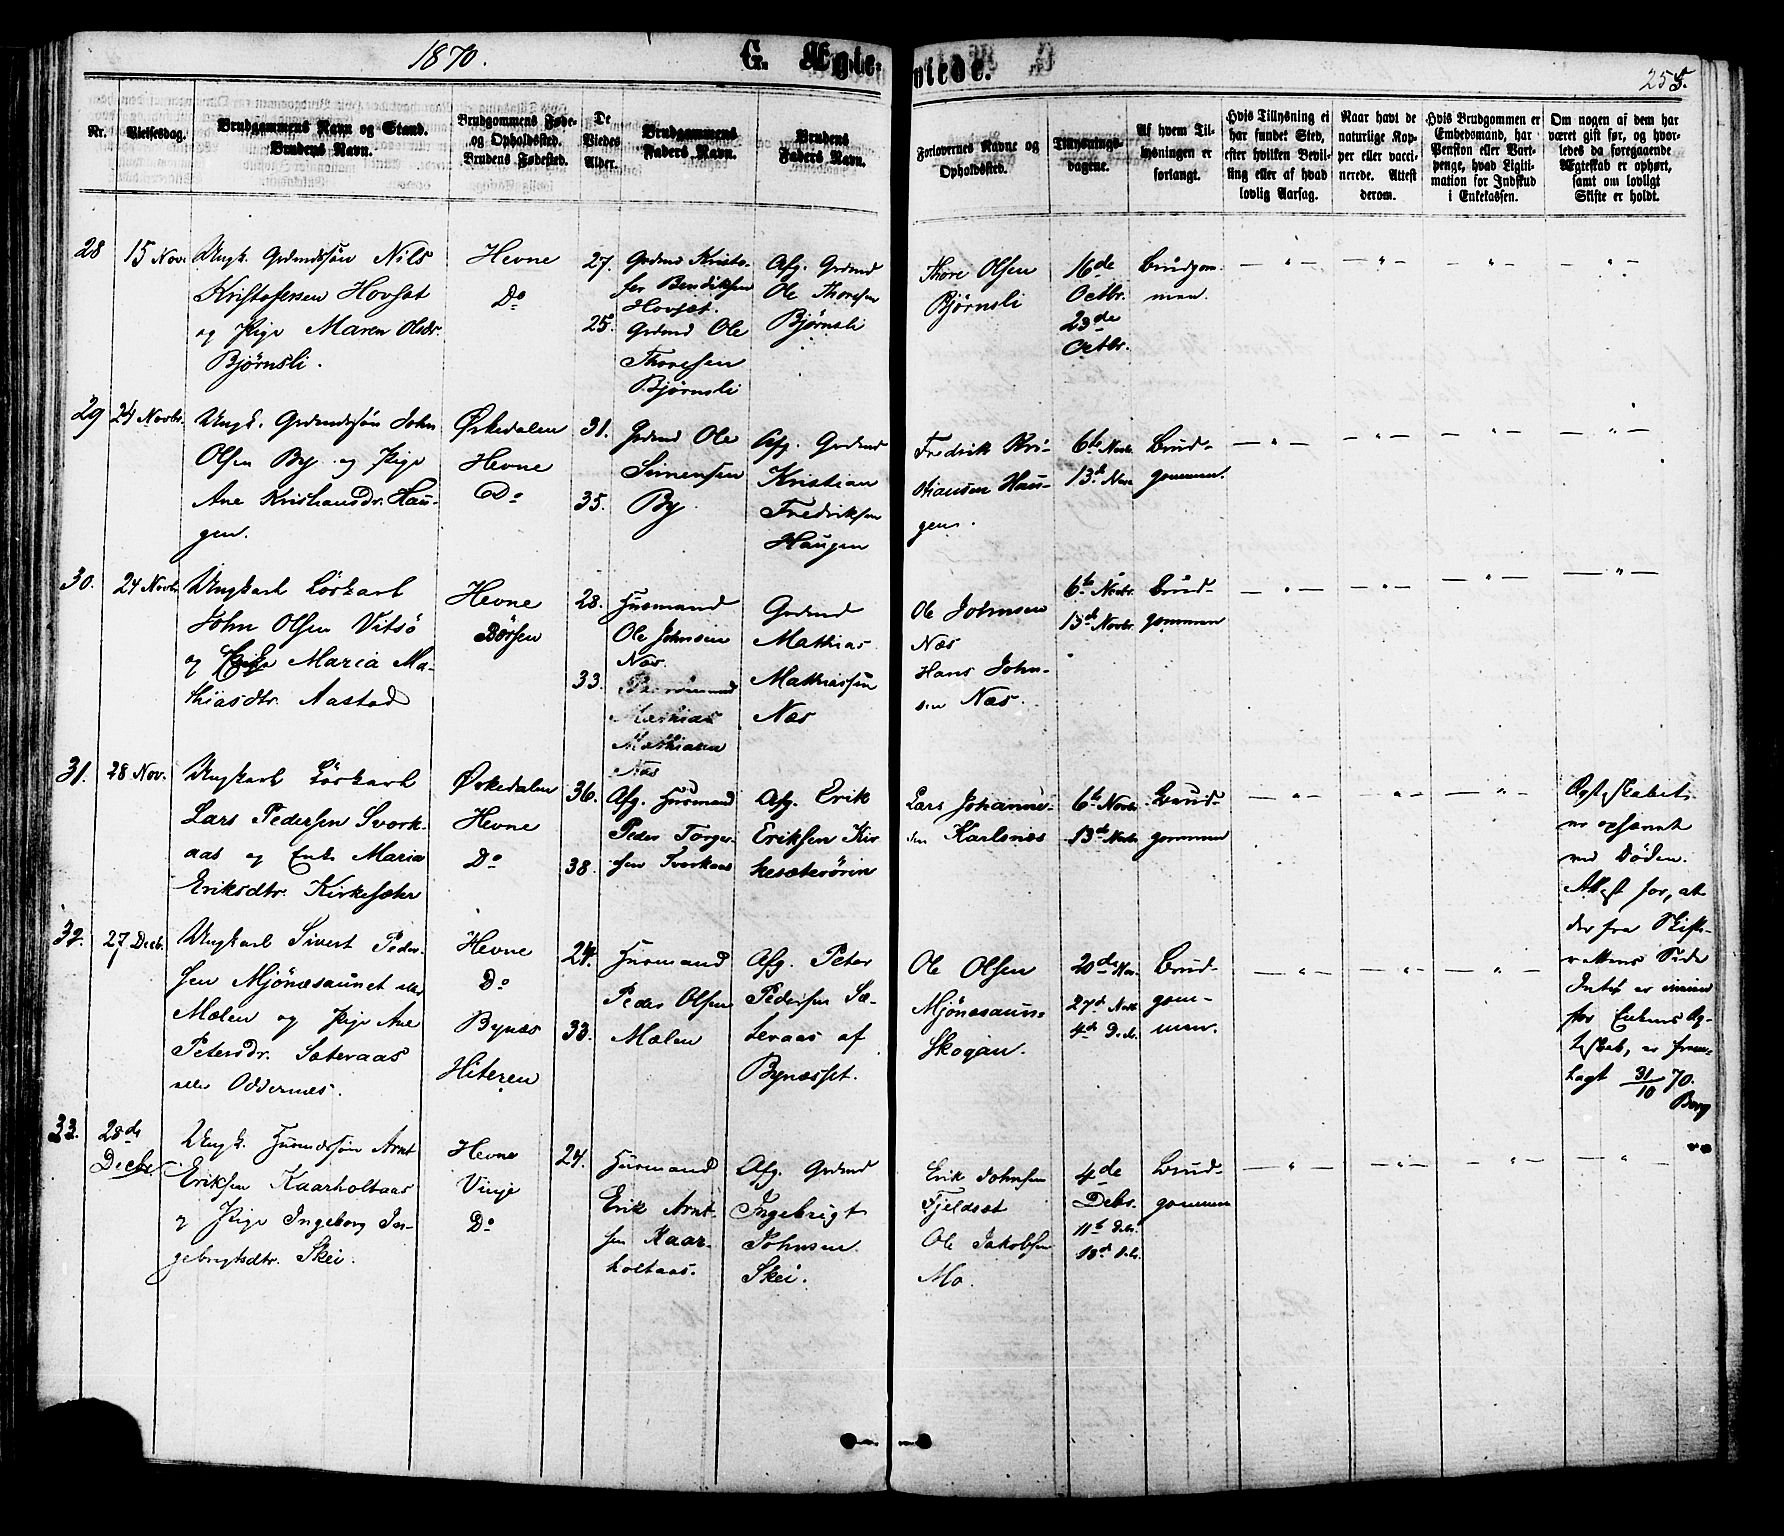 1870.
G. Ægte-
viede.
255.
Nr.
Vielsesdag.
Brudgommens Navn og Stand.
Brudens Navn.
Brudgommens Føde-
og Opholdssted.
Brudens Fødested.
De
Viedes
Alder.
Brudgommens
Faders Navn.
Brudens
Faders Navn.
Forlovernes Navne og
Opholdssted.
Tillysnings-
dagene.
Af hvem Til-
lysningen er
forlangt.
Hvis Tillysning ei
har fundet Sted,
efter hvilken Bevil-
ling eller af hvad
lovlig Aarsag.
Naar havt de
naturlige Kop-
per eller vacci-
nerede. Attest
derom.
Hvis Brudgommen er
Embedsmand, har
Pension eller Vart-
penge, hvad Ligiti-
mation for Indskud
i Enkekassen.
Om nogen af dem har
været gift før, og hvor-
ledes da foregaaende
Ægteskab er ophørt,
samt om lovligt
Skifte er holdt.
28
15 Nov.
Ungk. Grdmdssön Nils
Kristofersen Hovset
og Pige Maren Olsdr.
Bjørnsli.
Hevne
Do
27.
25.
Grdmd Kristo-
fer Bendiksen
Hovset.
Grdmd Ole
Thoresen
Bjørnsli
Afg. Grdmd
Ole Thoresen
Bjørnsli
Thore Olsen
Bjørnsli
16de
Octbr.
23de
Octbr.
Brudgom-
men.
— " —
— " —
— " —
— " —
29
24 Novbr.
Ungk. Grdmdssön John
Olsen By og Pige
Ane Kristiansdr. Hau-
gen.
Ørkedalen
Hevne
Do
31.
35.
Grdmd Ole
Simensen
By
Afg. Grdmd
Kristian
Fredriksen
Haugen
Fredrik Kri-
stiansen Hau-
gen.
6te Novbr.
13de Nov.
Brud-
gommen.
— " —
— " —
— " —
— " —
30.
24 Novbr.
Ungkarl Löskarl
John Olsen Vitsö
og Pige Maria Ma-
thiasdtr. Aastad
Hevne
Börsen
28.
33.
Husmand
Ole Johnsen
Næs.
Mathias
Mathiasen
Næs
Grdmd
Mathias
Mathiassen
Næs
Ole Johnsen
Næs
Hans John-
sen Næs.
6te Novbr.
13de Novbr.
Brud-
gommen
— " —
— " —
— " —
— " —
31.
28 Nov.
Ungkarl Löskarl
Lars Pedersen Svork-
aas og Enke Maria
Eriksdtr. Kirkesæter
Ørkedalen
Hevne
Do
36.
38.
Afg. Husmand
Peder Torger-
sen Svorkaas
Afg. Erik
Eriksen Kir-
kesæterören
Lars Johanne-
sen Karlsnes
6te Novbr.
13de Novbr.
Brud-
gommen
— " —
— " —
— " —
Ægteskabet
er ophævet
ved Döden.
Attest for, at
der fra Skifte-
rettens Side
Intet er imod
for Enkens Æg-
teskab, er frem-
lagt 31/10 70.
Berg
32.
27 Decbr.
Ungkarl Sivert Peder-
sen Mjönesaunet eller
Mælen og Pige Ane
Petersdr. Sæteraas
eller Oddernes.
Hevne
Do
Bynæs
Hiteren
24.
33.
Husmand
Peder Olsen
Mælen
Afg. Peter
Pedersen Sæ-
teraas af
Bynæsset.
Ole Olsen
Mjönesaun-
Skogan.
20de Nov.
27de Novbr.
4de Decbr.
Brud-
gom-
men.
— " —
— " —
— " —
33.
28de
Decbr.
Ungk. Husmdssön Arnt
Eriksen Kaarholtaas
og Pige Ingeborg In-
gebrigtsdtr. Skei.
Hevne
Vinje
Do
24.
Husmand
Erik Arnt-
sen Kaar-
holtaas.
Afg. Grdmd
Ingebrigt
Johnsen
Skei.
Erik Johnsen
Fjeldset
Ole Jakobsen
Mo.
4de
Debr.
11te Debr.
18de Debr.
Brud-
gommen
— " —
— " —
— " —
— " —